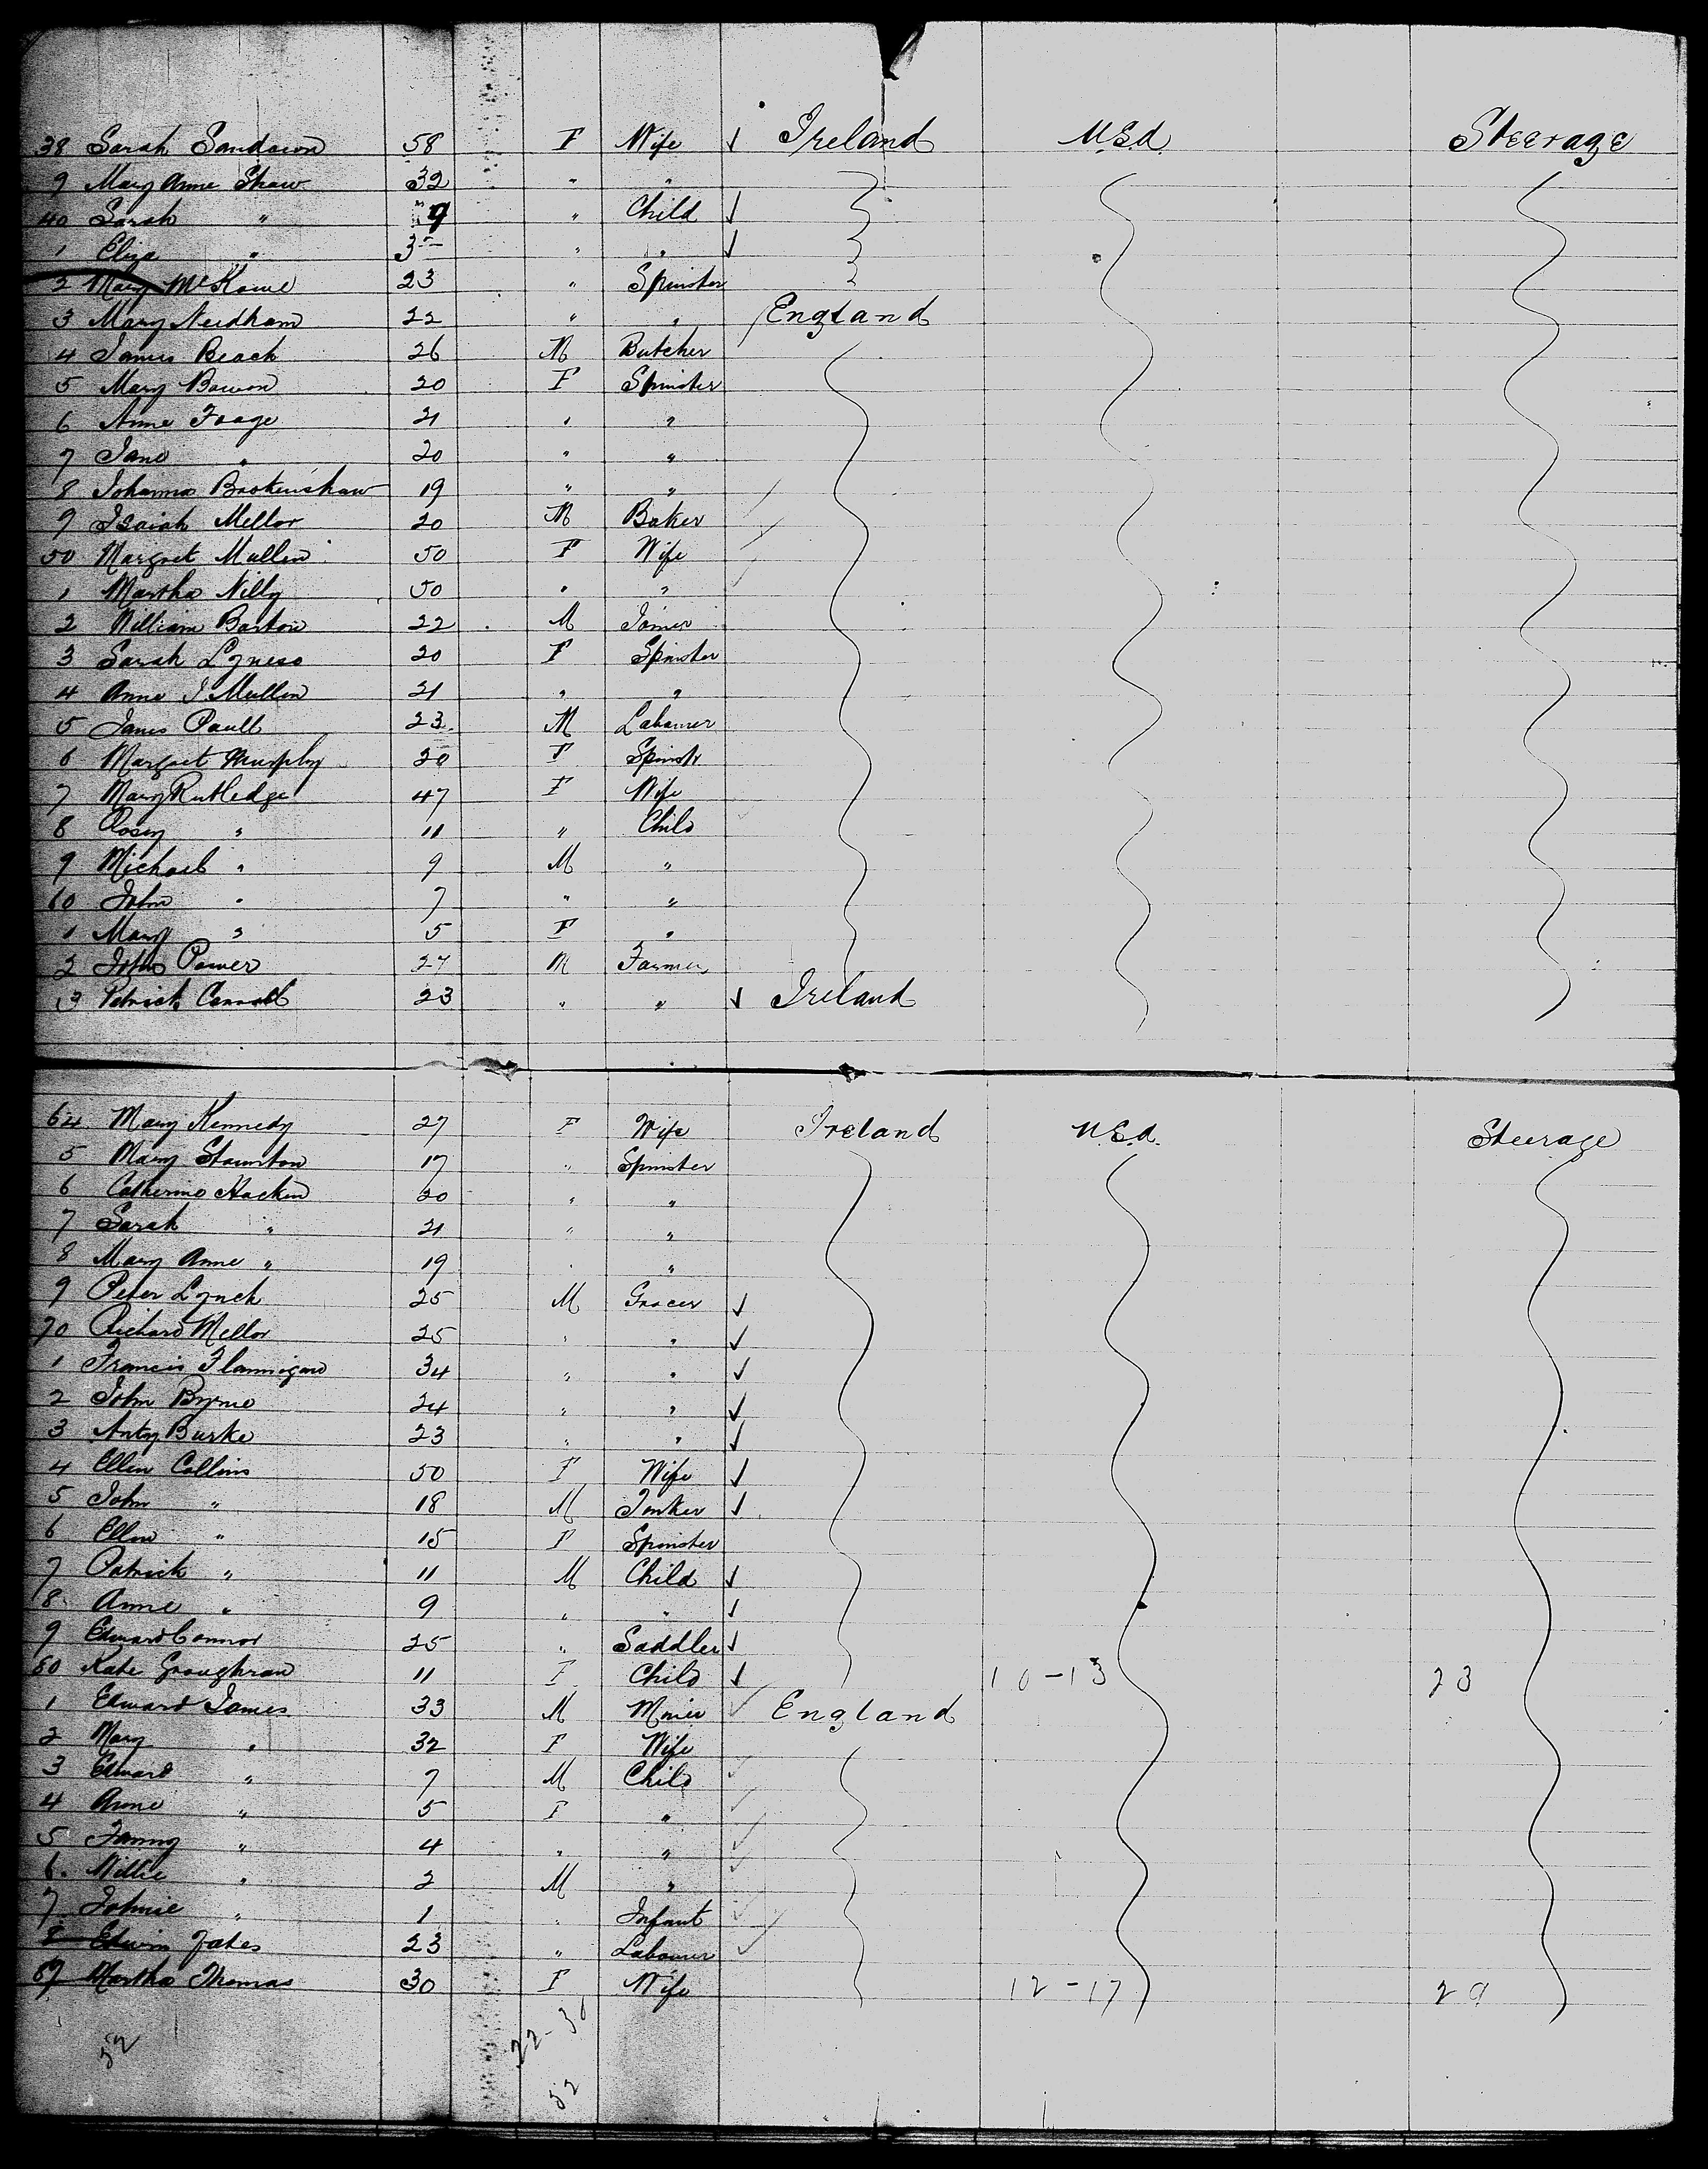 38 Sarah Sandason 58 F Wife ✓ Ireland U.S.A. Steerage
9 Mary Anne Shaw 32 " "
40 Sarah " 9 " Child ✓
1 Eliza " 3 " " ✓
2 Mary McKowe 23 " Spinster
3 Mary Needham 22 " " England
4 James Beach 26 M Butcher
5 Mary Bowon 20 F Spinster
6 Anne Foage 21 " "
7 Jane " 20 " "
8 Johanna Brokenshaw 19 " "
9 Isaiah Mellor 20 M Baker
50 Margret Mullen 50 F Wife
1 Martha Nilly 50 " "
2 William Barton 22 M Joiner
3 Sarah Lyness 20 F Spinster
4 Anne J Mullen 21 " "
5 James Paull 23 M Labourer
6 Margret Murphy 20 F Spinstr
7 Mary Rutledge 47 F Wife
8 Rosey " 11 " Child
9 Michael " 9 M "
60 John " 7 " "
1 Mary " 5 F "
2 John Power 27 M Farmer
3 Patrick Carroll 23 " " ✓ Ireland
64 Mary Kennedy 27 F Wife Ireland U.S.A. Steerage
5 Mary Staunton 17 " Spinster
6 Catherine Hacken 20 " "
7 Sarah " 21 " "
8 Mary Anne " 19 " "
9 Peter Lynch 25 M Grocer ✓
70 Richard Mellor 25 " " ✓
1 Francis Flannigan 34 " " ✓
2 John Byrne 24 " " ✓
3 Anty Burke 23 " " ✓
4 Ellen Collins 50 F Wife ✓
5 John " 18 M Tinker ✓
6 Ellen " 15 F Spinster
7 Patrick " 11 M Child ✓
8 Anne " 9 " " ✓
9 Edward Connor 25 " Saddler ✓
80 Kate Groughran 11 F Child ✓ 10-13 23
1 Edward James 33 M Miner ✓ England
2 Mary " 32 F Wife
3 Edward " 7 M Child ✓
4 Anne " 5 F " ✓
5 Fanny " 4 " " ✓
6 Willie " 2 M " ✓
7 Johnie " 1 " Infant ✓
8 Edwin Yates 23 " Labourer ✓
89 Martha Thomas 30 F Wife 12-17 29
52 22-30
52